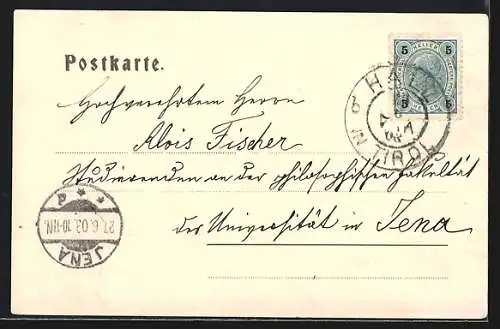 Postkarte.
5 HELLER 5
5 5
HALL
IN TIROL
Hochverehrtem Herrn
Alois Fischer
Studierenden an der philosophischen Fakultät
der Universität in Jena
27.6.02. 10-11N.
JENA